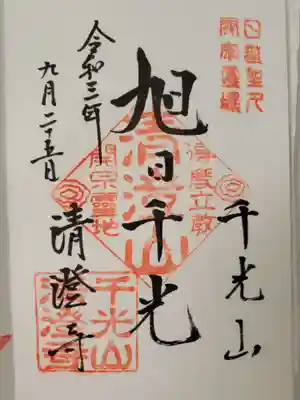 日蓮聖人
千光山
得度立教
旭日千光
清澄山
開宗霊地
令和三年
九月二十五日
清澄寺
千光山
清澄寺